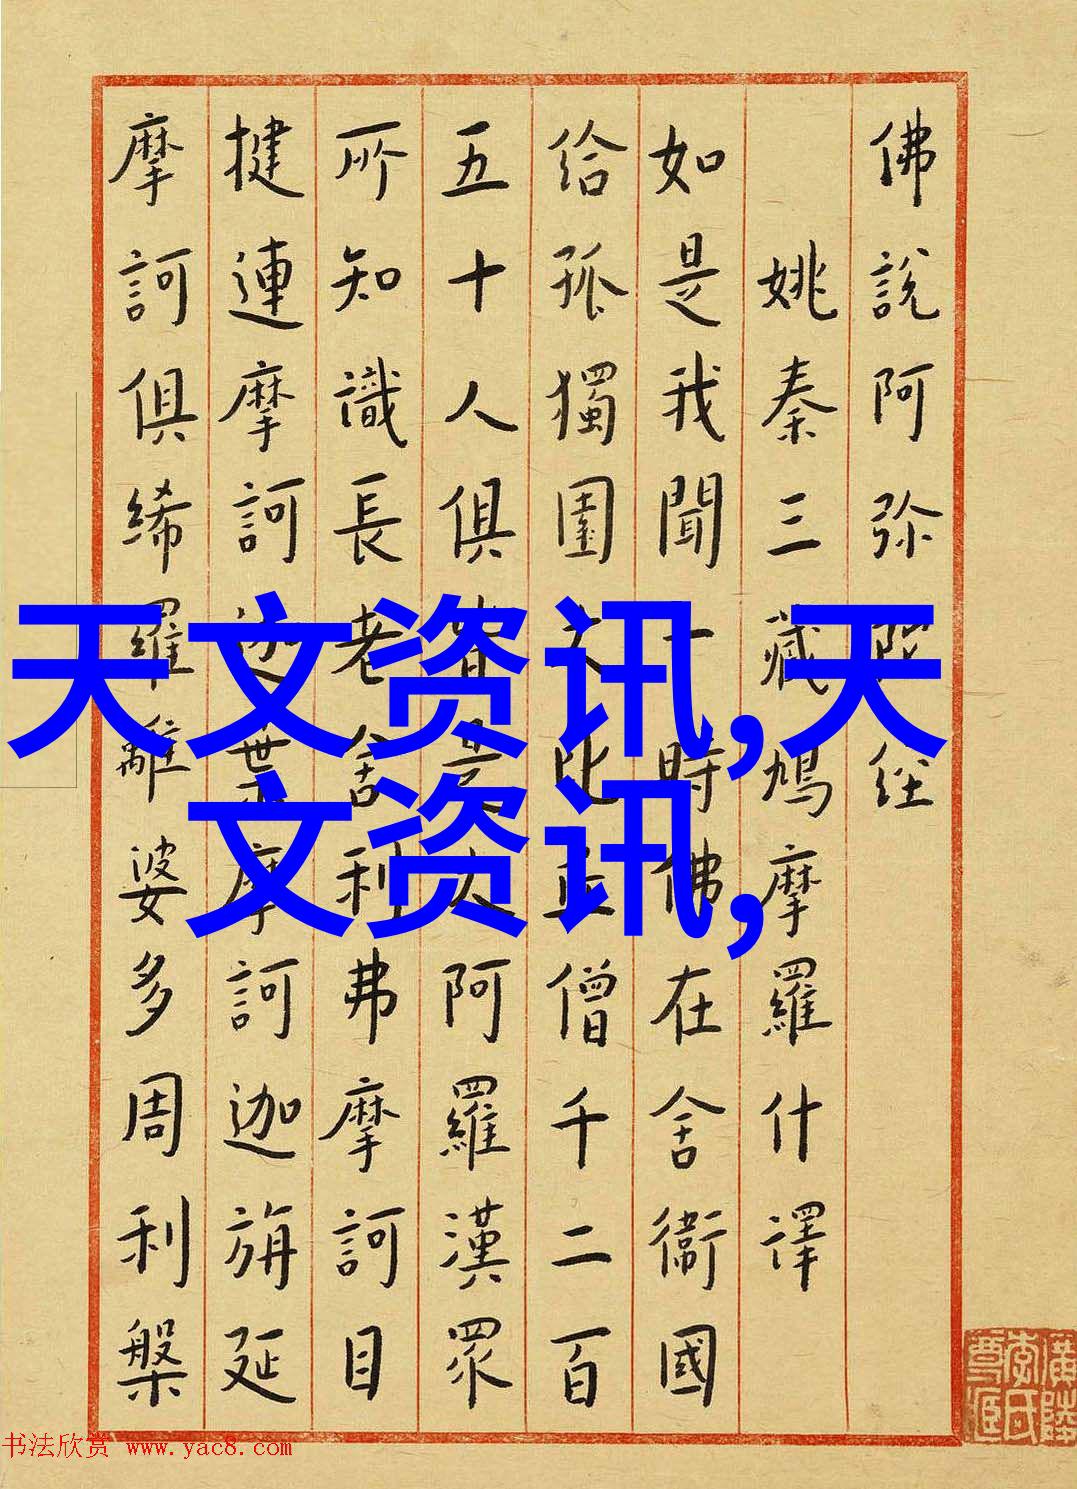 佛說阿弥陀經
姚秦三藏鳩摩羅什譯
如是我聞一時佛在舍衛國
給孤獨園大比丘僧千二百
五十人俱皆是大阿羅漢眾
所知識長老舍利弗摩訶目
揵連摩訶迦葉摩訶迦旃延
摩訶俱絺羅離婆多周利槃
天文资讯,天
文资讯,
书法欣赏 www.yac8.com